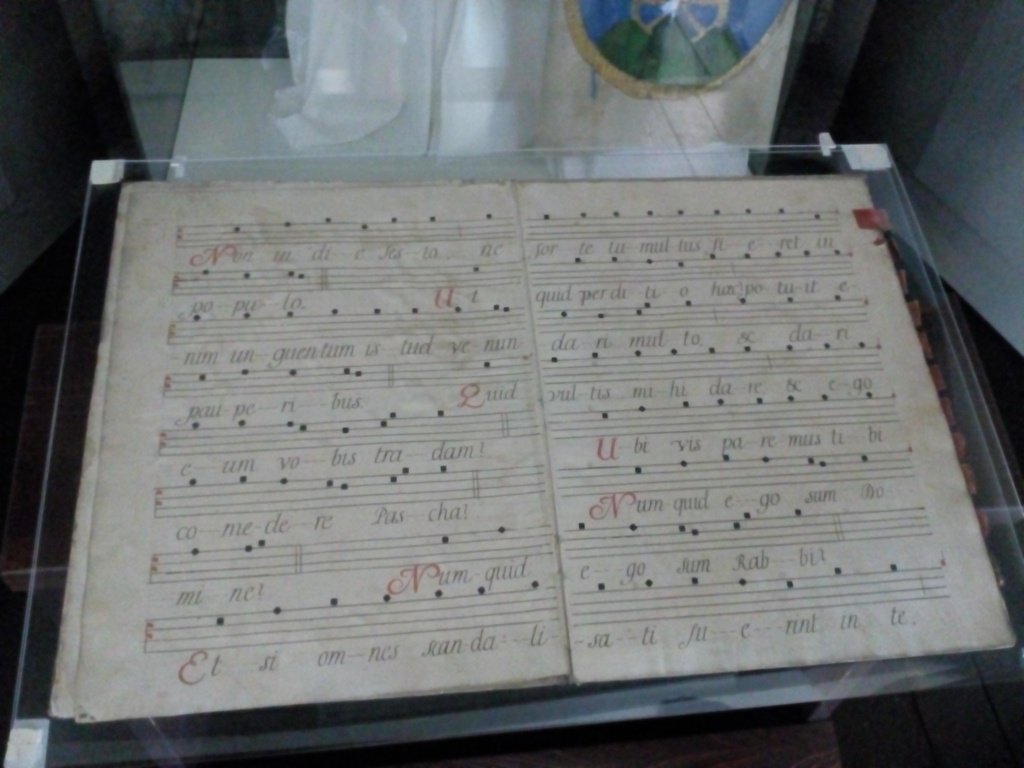 Non in di--e fes--to. ne for--te tu-mul-tus fi--e--ret in
po--pu--lo. Ut quid per di--ti--o hæc po--tu-it e--
nim un--guentum is--tud ve--nun da--ri mul--to. & da--ri
pau--pe--ri--bus Quid vul-tis mi--hi da--re & e--go
e--um vo--bis tra--dam? Ubi vis pa--re-mus ti--bi
co--me--de--re Pas--cha? Num-quid e--go sum Do--
mi--ne? Num--quid e--go sum Rab--bi?
Et si om--nes scan-da--li- -sa--ti fu--e---rint in te.